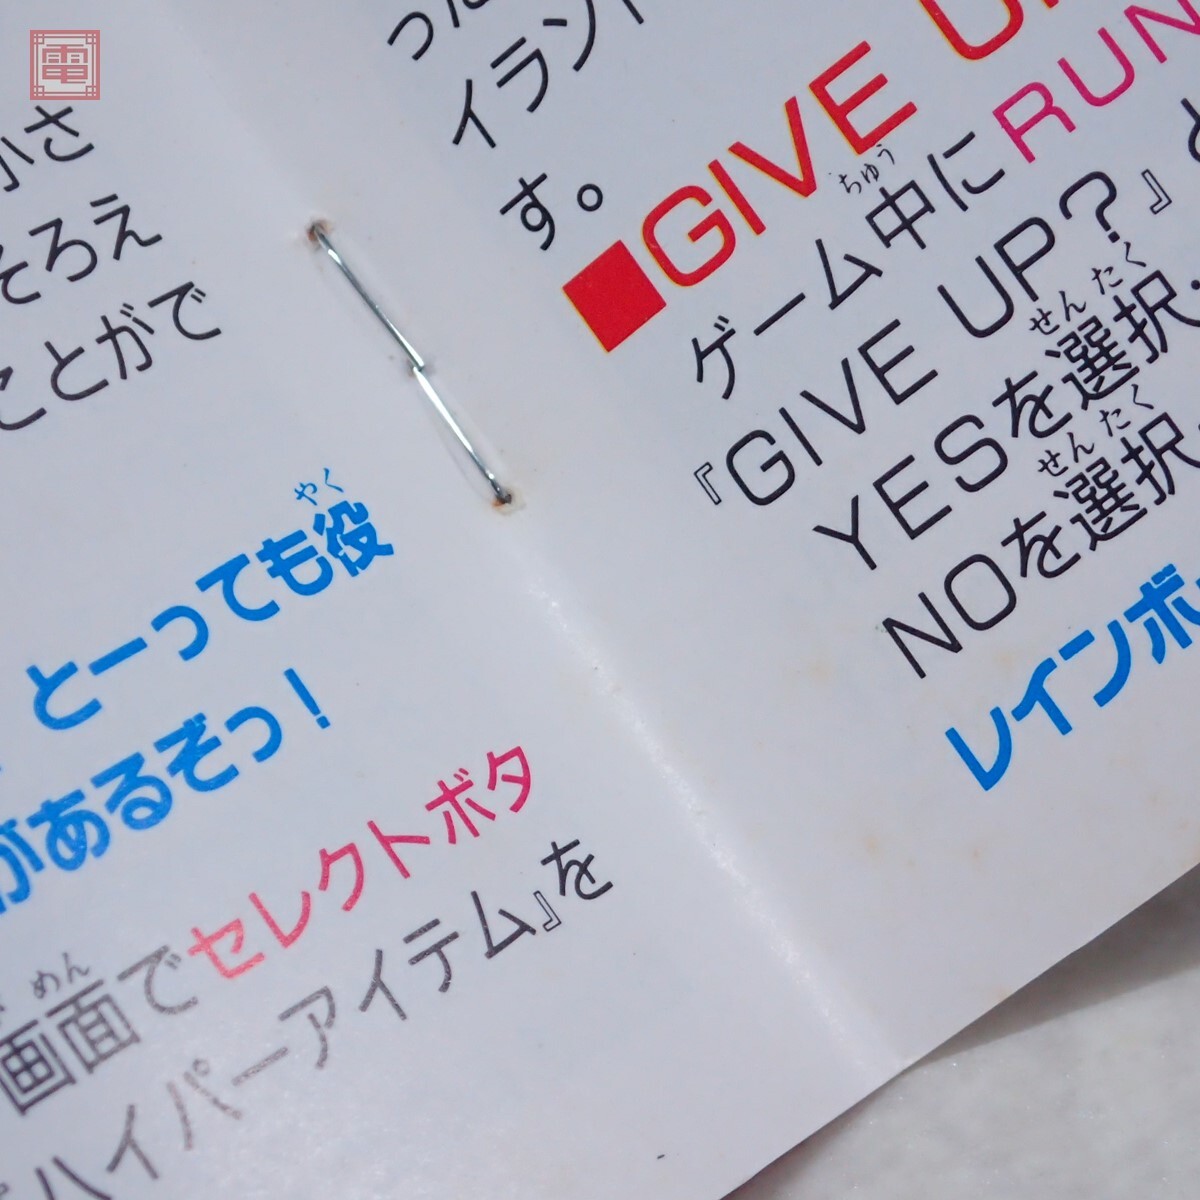 電
かさ
そろえ
ことがで
やく
とーっても役
があるぞっ!
めん
画面でセレクトボタ
ハイパーアイテム』を
った
イラン
す。
■GIVE U
ちゅう
ゲーム中にRUN
『GIVE UP?』と
せんたく
YESを選択
せんたく
NOを選択
レインボ